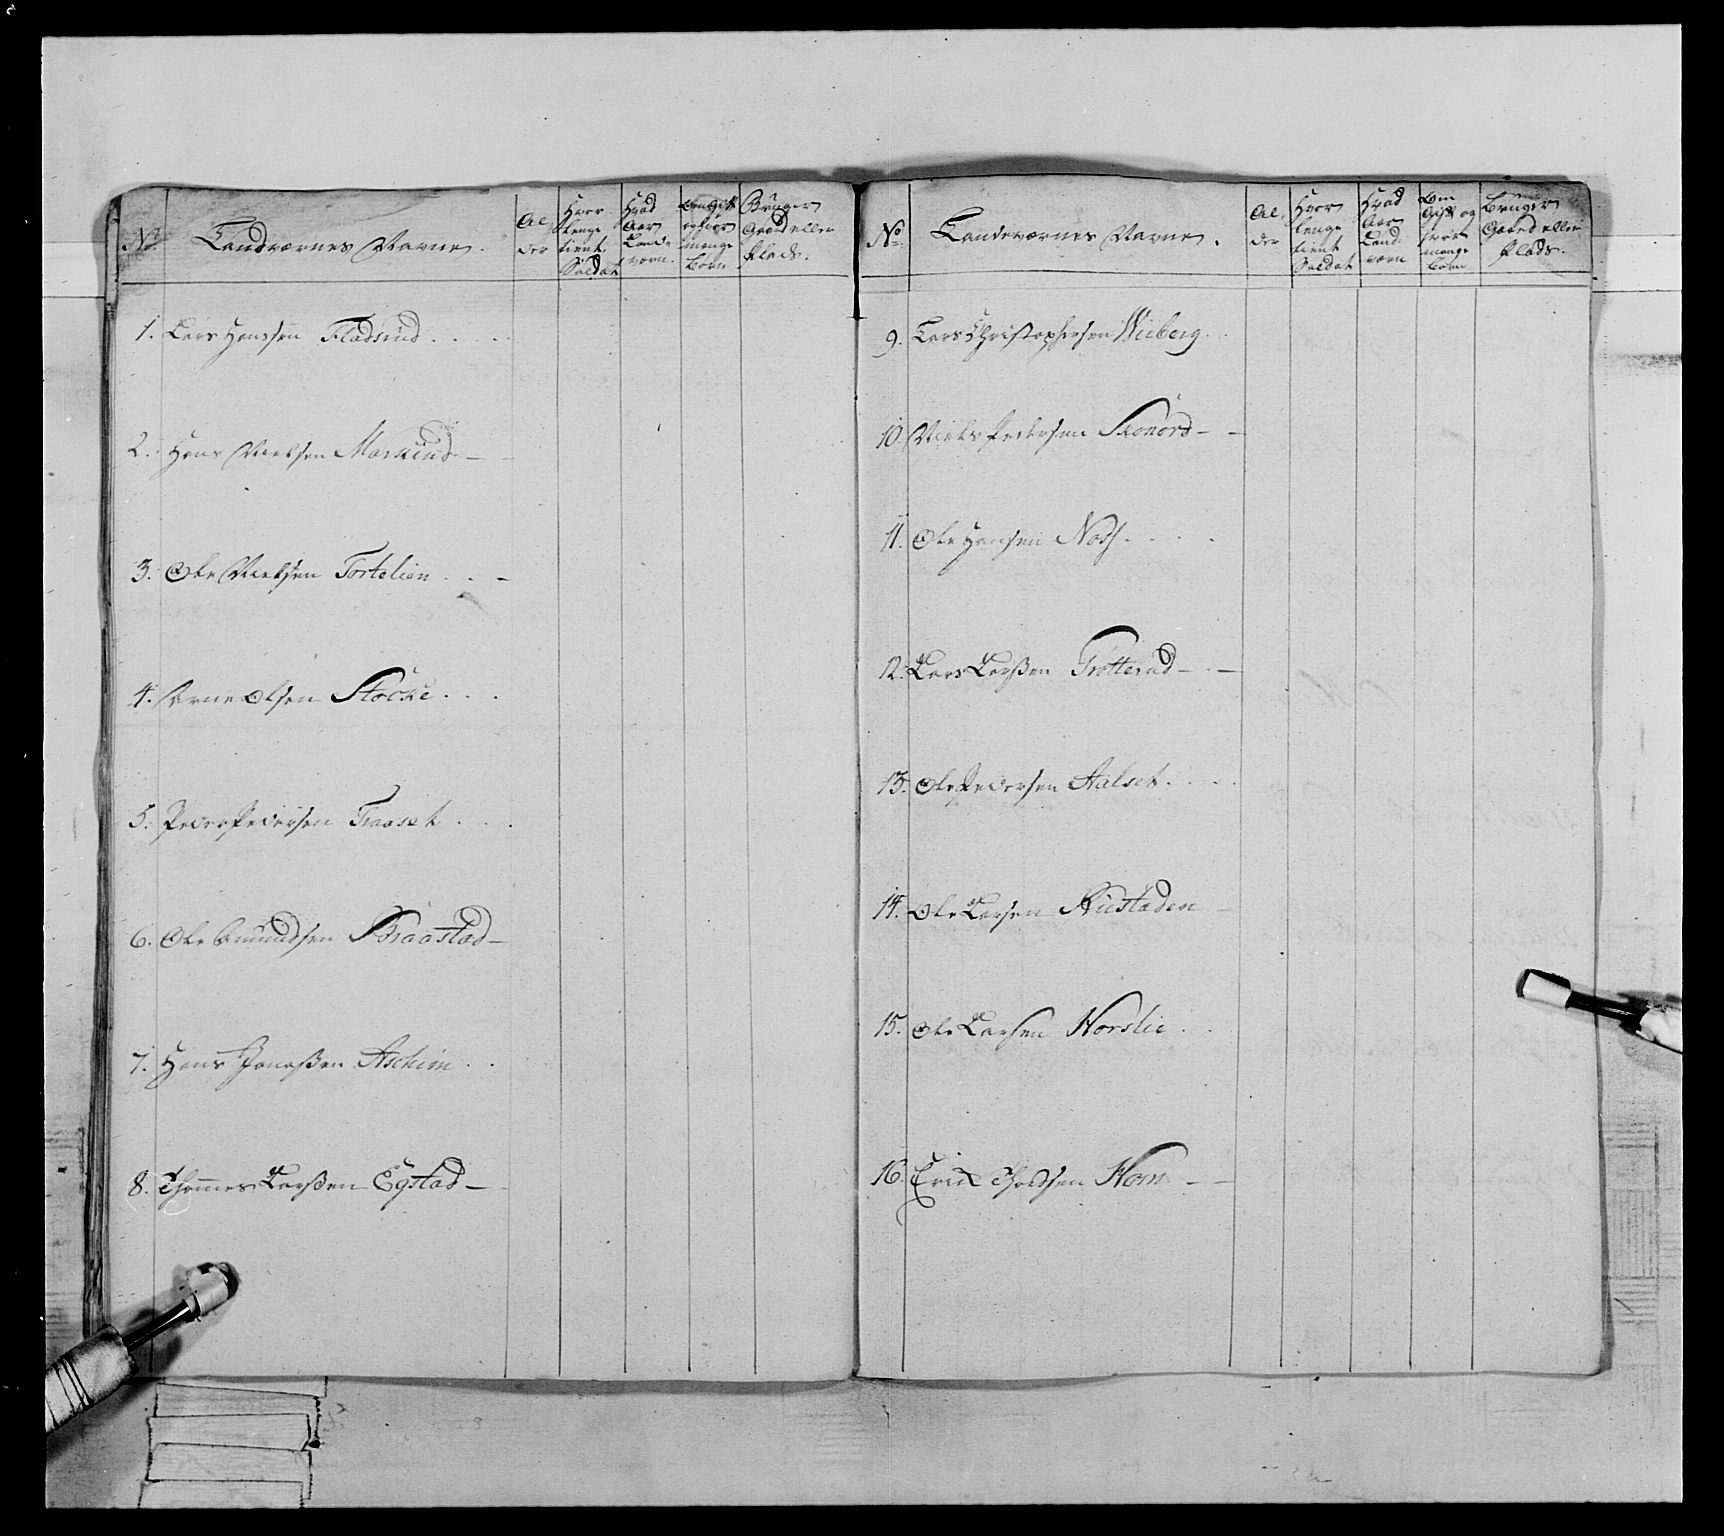 No
Landværnes Navne.
Al,
der
Hvor
lenge
tient
Soldat
Hvad
Aar
Lande
værn.
Om Gift
og hvor
mange
Børn
Bruger
Gaard eller
Plads.
1. Lars Hanssen Fladsrud . . . .
2. Hans Nielsen Markrud - -
3. Ole Nielsen Tortelien . . -
4. Arne Olsen Stocke . . .
5. Peder Pedersen Traaset . . .
6. Ole Amundsen Braastad -
7. Hans Jonaßen Aschim . .
8. Thommes Larßen Egstad - -
No
Landeværnes Navne.
Al,
der
Hvor
lenge
tient
Soldat
Hvad
Aar
Land
værn
Om
Gift og
hvor
mange
Børn
Bruger
Gaard eller
Plads.
9. Lars Christophersen Wiiberg . .
10. Niels Pedersen Skonord - -
11. Ole Hansen Noss . . . .
12. Lars Larßen Trøtterud - . -
13. Ole Pedersen Aalset . . . .
14. Ole Larsen Rustaden -
15. Ole Larsen Horslie . .
16. Erick Tholdsen Horn - -